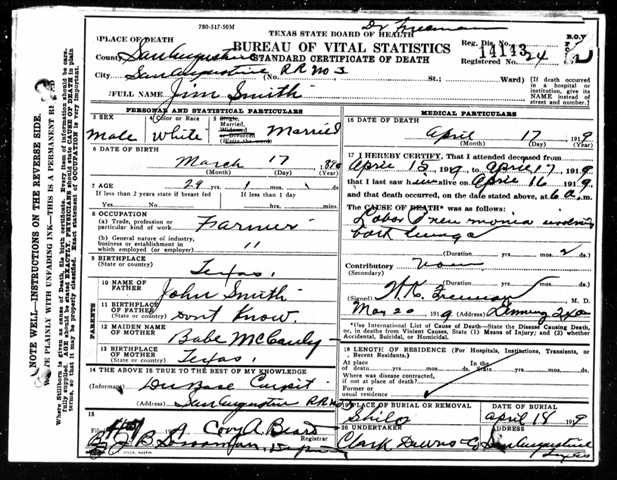 780-517-50M
Dr Freeman
TEXAS STATE BOARD OF HEALTH
BUREAU OF VITAL STATISTICS
STANDARD CERTIFICATE OF DEATH
Reg. Dis. No. 14143
Registered No. 24
1 PLACE OF DEATH
County San Augustine
City San Augustine RR No 3 (No. St.; Ward)
[If death occurred in a hospital or institution, give its NAME instead of street and number.]
2 FULL NAME Jim Smith
PERSONAL AND STATISTICAL PARTICULARS
3 SEX
Male
4 Color or Race
White
5 Single, Married, Widowed or Divorced (Write the word)
Married
6 DATE OF BIRTH
March 17
(Month) (Day) (Year)
7 AGE
29 yrs. 1 mos. ds.
If less than 2 years state if breast fed Yes No
If less than 1 day hrs. min.
8 OCCUPATION
(a) Trade, profession or particular kind of work Farmer
(b) General nature of industry, business or establishment in which employed (or employer) "
9 BIRTHPLACE
(State or country) Texas
PARENTS
10 NAME OF FATHER John Smith
11 BIRTHPLACE OF FATHER
(State or country) Dont Know
12 MAIDEN NAME OF MOTHER Babe McCauly
13 BIRTHPLACE OF MOTHER
(State or country) Texas
14 THE ABOVE IS TRUE TO THE BEST OF MY KNOWLEDGE
(Informant)
(Address) San Augustine RR No 3
15
Filed 191
Registrar
MEDICAL PARTICULARS
16 DATE OF DEATH
April 17 1919
(Month) (Day) (Year)
17 I HEREBY CERTIFY, That I attended deceased from
April 15 1919 to April 17 1919
that I last saw him alive on April 16 1919
and that death occurred, on the date stated above, at 6 a.m.
The CAUSE OF DEATH* was as follows:
Lobar Pneumonia
both lungs
(Duration) yrs. mos. 2 ds.
Contributory
(Secondary)
(Duration) yrs. mos. ds.
(Signed) Freeman M. D.
May 20 1919 (Address) Denning Texas
*Use International List of Cause of Death—State the Disease Causing Death, or, in deaths from Violent Causes, State (1) Means of Injury; and (2) whether Accidental, Suicidal, or Homicidal.
18 LENGTH OF RESIDENCE (For Hospitals, Institutions, Transients, or Recent Residents.)
At place of death yrs. mos. ds. In the State yrs. mos. ds.
Where was disease contracted, if not at place of death?
Former or usual residence
19 PLACE OF BURIAL OR REMOVAL
Shilo
DATE OF BURIAL
April 18 1919
20 UNDERTAKER
Clark Downs Co
ADDRESS
San Augustine Texas
NOTE WELL—INSTRUCTIONS ON THE REVERSE SIDE.
WRITE PLAINLY WITH UNFADING INK—THIS IS A PERMANENT RECORD